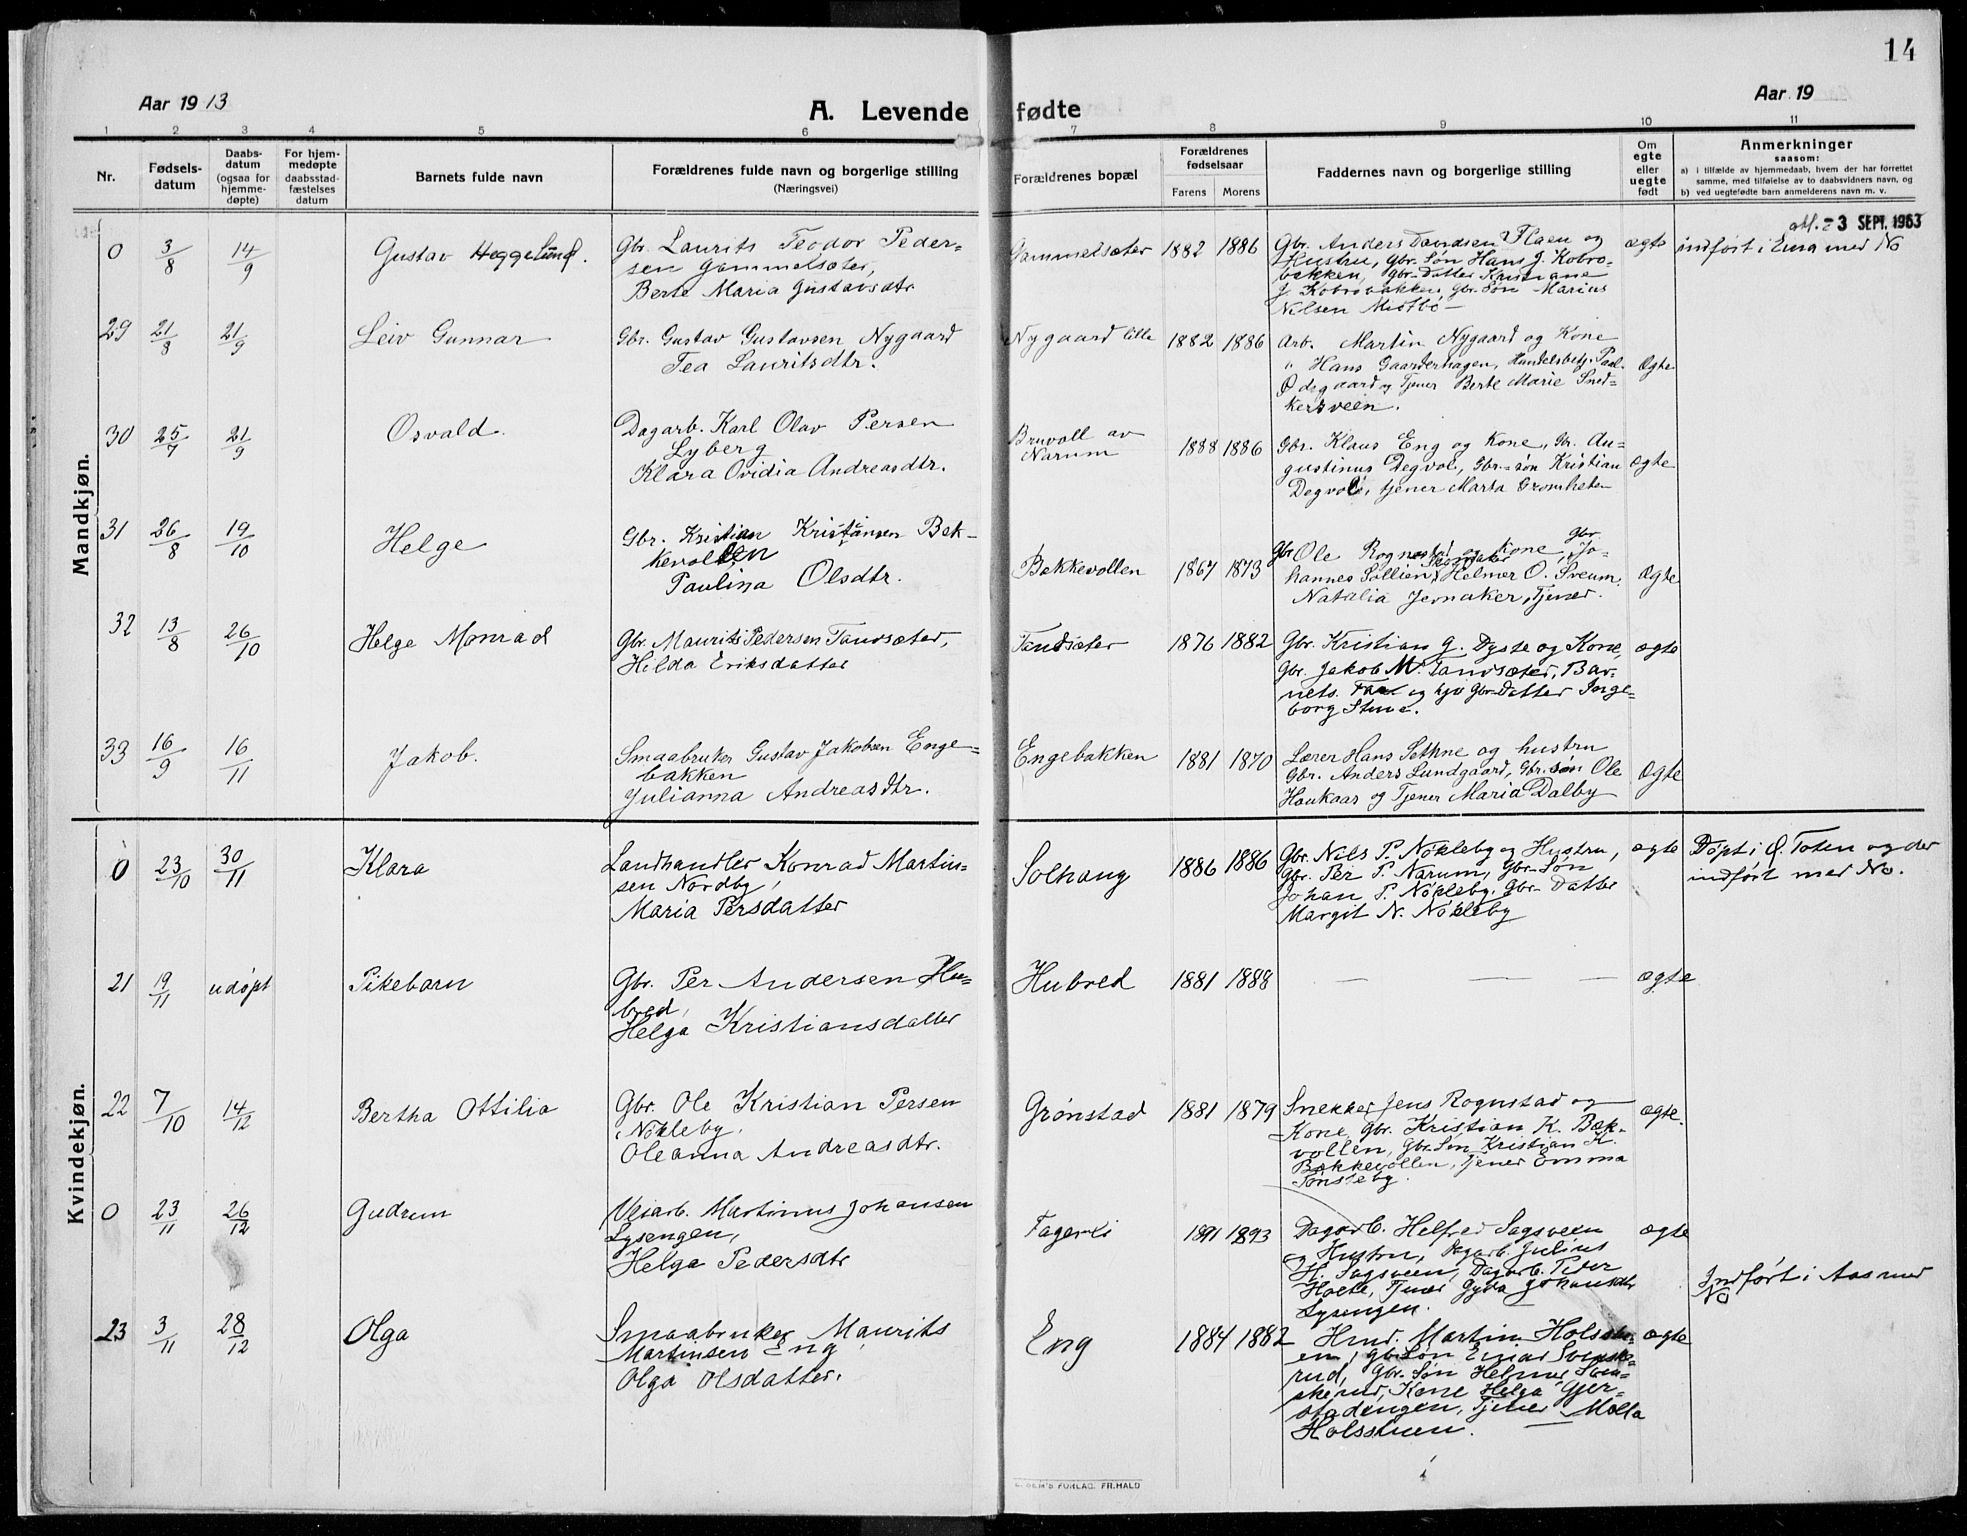 14
Aar 1913
A. Levende fødte
Aar 19
1 2 3 4 5 6 7 8 9 10 11
Nr.
Fødsels-
datum
Daabs-
datum
(ogsaa for
hjemme-
døpte)
For hjem-
medøpte
daabsstad-
fæstelses
datum
Barnets fulde navn
Forældrenes fulde navn og borgerlige stilling
(Næringsvei)
Forældrenes bopæl
Forældrenes
fødselsaar
Farens Morens
Faddernes navn og borgerlige stilling
Om
egte
eller
uegte
født
Anmerkninger
saasom:
a) i tilfælde av hjemmedaab, hvem der har forrettet
samme, med tilføielse av to daabsvidners navn, og
b) ved uegtefødte barn anmelderens navn m. v.
Mandkjøn.
0 3/8 14/9 Gustav Heggelund.
Gbr. Laurits Teodor Peder-
sen Gammelsæter,
Berte Maria Gustavsdtr
Gammelsæter 1882 1886
Gbr. Anders Davidsen Flaen og
Hustru, Gbr. Søn Hans J. Kobro-
bakken, Gbr-Datter Kristiane
J. Kobrobakken, Gbr. Søn Marius
Nilsen
ægte
3 SEPT. 1963
indført i Eina med No
29 21/8 21/9 Leiv Gunnar
Gbr. Gustav Gustavsen Nygaard
Tea Lauritsdtr.
Nygaard lille 1882 1886
Arb. Martin Nygaard og Kone
" Hans Gaarderhagen, Handelsbetj. Paul
Ødegaard og Tjener Berte Marie Sned-
kersveen.
Ægte
30 25/7 21/9 Osvald.
Dagarb. Karl Olav Persen
Lyberg
Klara Ovidia Andreasdtr.
Bruvoll av
Narum
1888 1886
Gbr. Klaus Eng og Kone, Gbr. Au-
gustinus Degvol, Gbr.-søn Kristian
Degvold, tjener Marta Gromheten
Ægte
31 26/8 19/10 Helge
Gbr. Kristian Kristiansen Bek-
kevollen
Paulina Olsdtr.
Bekkevollen 1867 1873
Gbr. Ole Rognstad og Kone, Gbr. Jo-
hannes Sollien, Helmer O. Sveum
Natalia Jernaker, Tjener.
Ægte
32 13/8 26/10 Helge Monrad
Gbr. Maurits Pedersen Tandsæter,
Hilda Eriksdatter
Tandsæter 1876 1882
Gbr. Kristian G. Dyste og Kone,
Gbr. Jakob M. Tandsæter, Bar-
nets Far og Gbr-Datter Inge-
borg Stuve.
ægte
33 16/9 16/11 Jakob.
Smaabruker Gustav Jakobsen Enge-
bakken
Julianna Andreasdtr.
Engebakken 1881 1870
Lærer Hans Sethne og hustru
Gbr. Anders Lundgaard, Gbr. søn Ole
Haukaas og Tjener Maria Dalby
Ægte
Kvindekjøn.
0 23/10 30/11 Klara
Landhandler Konrad Martin-
sen Nordby,
Maria Persdatter
Solhaug 1886 1886
Gbr. Nils P. Nökleby og Hustru,
Gbr. Per P. Narum, Gbr. Søn
Johan P. Nökleby, Gbr. Datter
Margit N. Nökleby
ægte
Döpt i Ø. Toten og der
indført med No.
21 19/11 udøpt Pikebarn
Gbr. Per Andersen Hu-
bred,
Helga Kristiansdatter
Hubred 1881 1888
— — —
ægte
22 7/10 14/12 Bertha Ottilia
Gbr. Ole Kristian Persen
Nökleby.
Oleanna Andreasdtr.
Grønstad 1881 1879
Snekker Jens Rognstad og
Kone, Gbr. Kristian K. Bæk-
vollen, Gbr. Søn Kristian K.
Bækkevollen, Tjener Emma
Tönsteby.
ægte.
0 23/11 26/12 Gudrun
Veiarb. Martinus Johansen
Lysengen,
Helga Pedersdtr
Fagerli 1891 1893
Dagarb. Helfred Sagsveen
og Hustru, Dagarb. Julius
H. Sagsveen, Dagarb. Peder
Holte, Tjener Gyda Johansdtr
Lysengen.
ægte
Indført i Aas med
No
23 3/11 28/12 Olga
Smaabruker Maurits
Martinsen Eng
Olga Olsdatter.
Eng 1884 1882
Hmd. Martin Holsstu-
en, Gbr. Søn Einar Svenske-
rud, Gbr. Søn Helmer Sven-
skerud, Kone Helga Gjer-
stadengen, Tjener Molla
Holsstuen.
ægte
FORLAG. FR. HALD